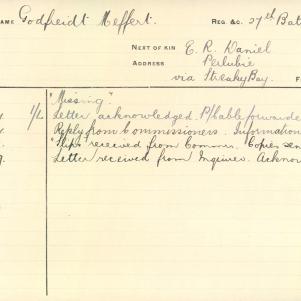 NAME Godfreidt Meffert. REG. &c. 27th Bat
NEXT OF KIN E. R. Daniel
ADDRESS Perlubie
via Streaky Bay.
"Missing."
1/L Letter acknowledged. P/Cable forwarde
Reply from Commissioners. Information
"Slips" received from Commrs. Copies sen
Letter received from Inquirer. Acknow